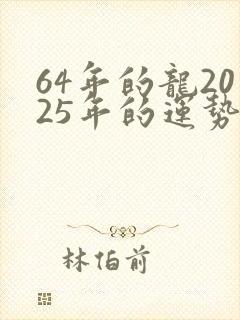 64年的龍20
25年的運勢
林伯前